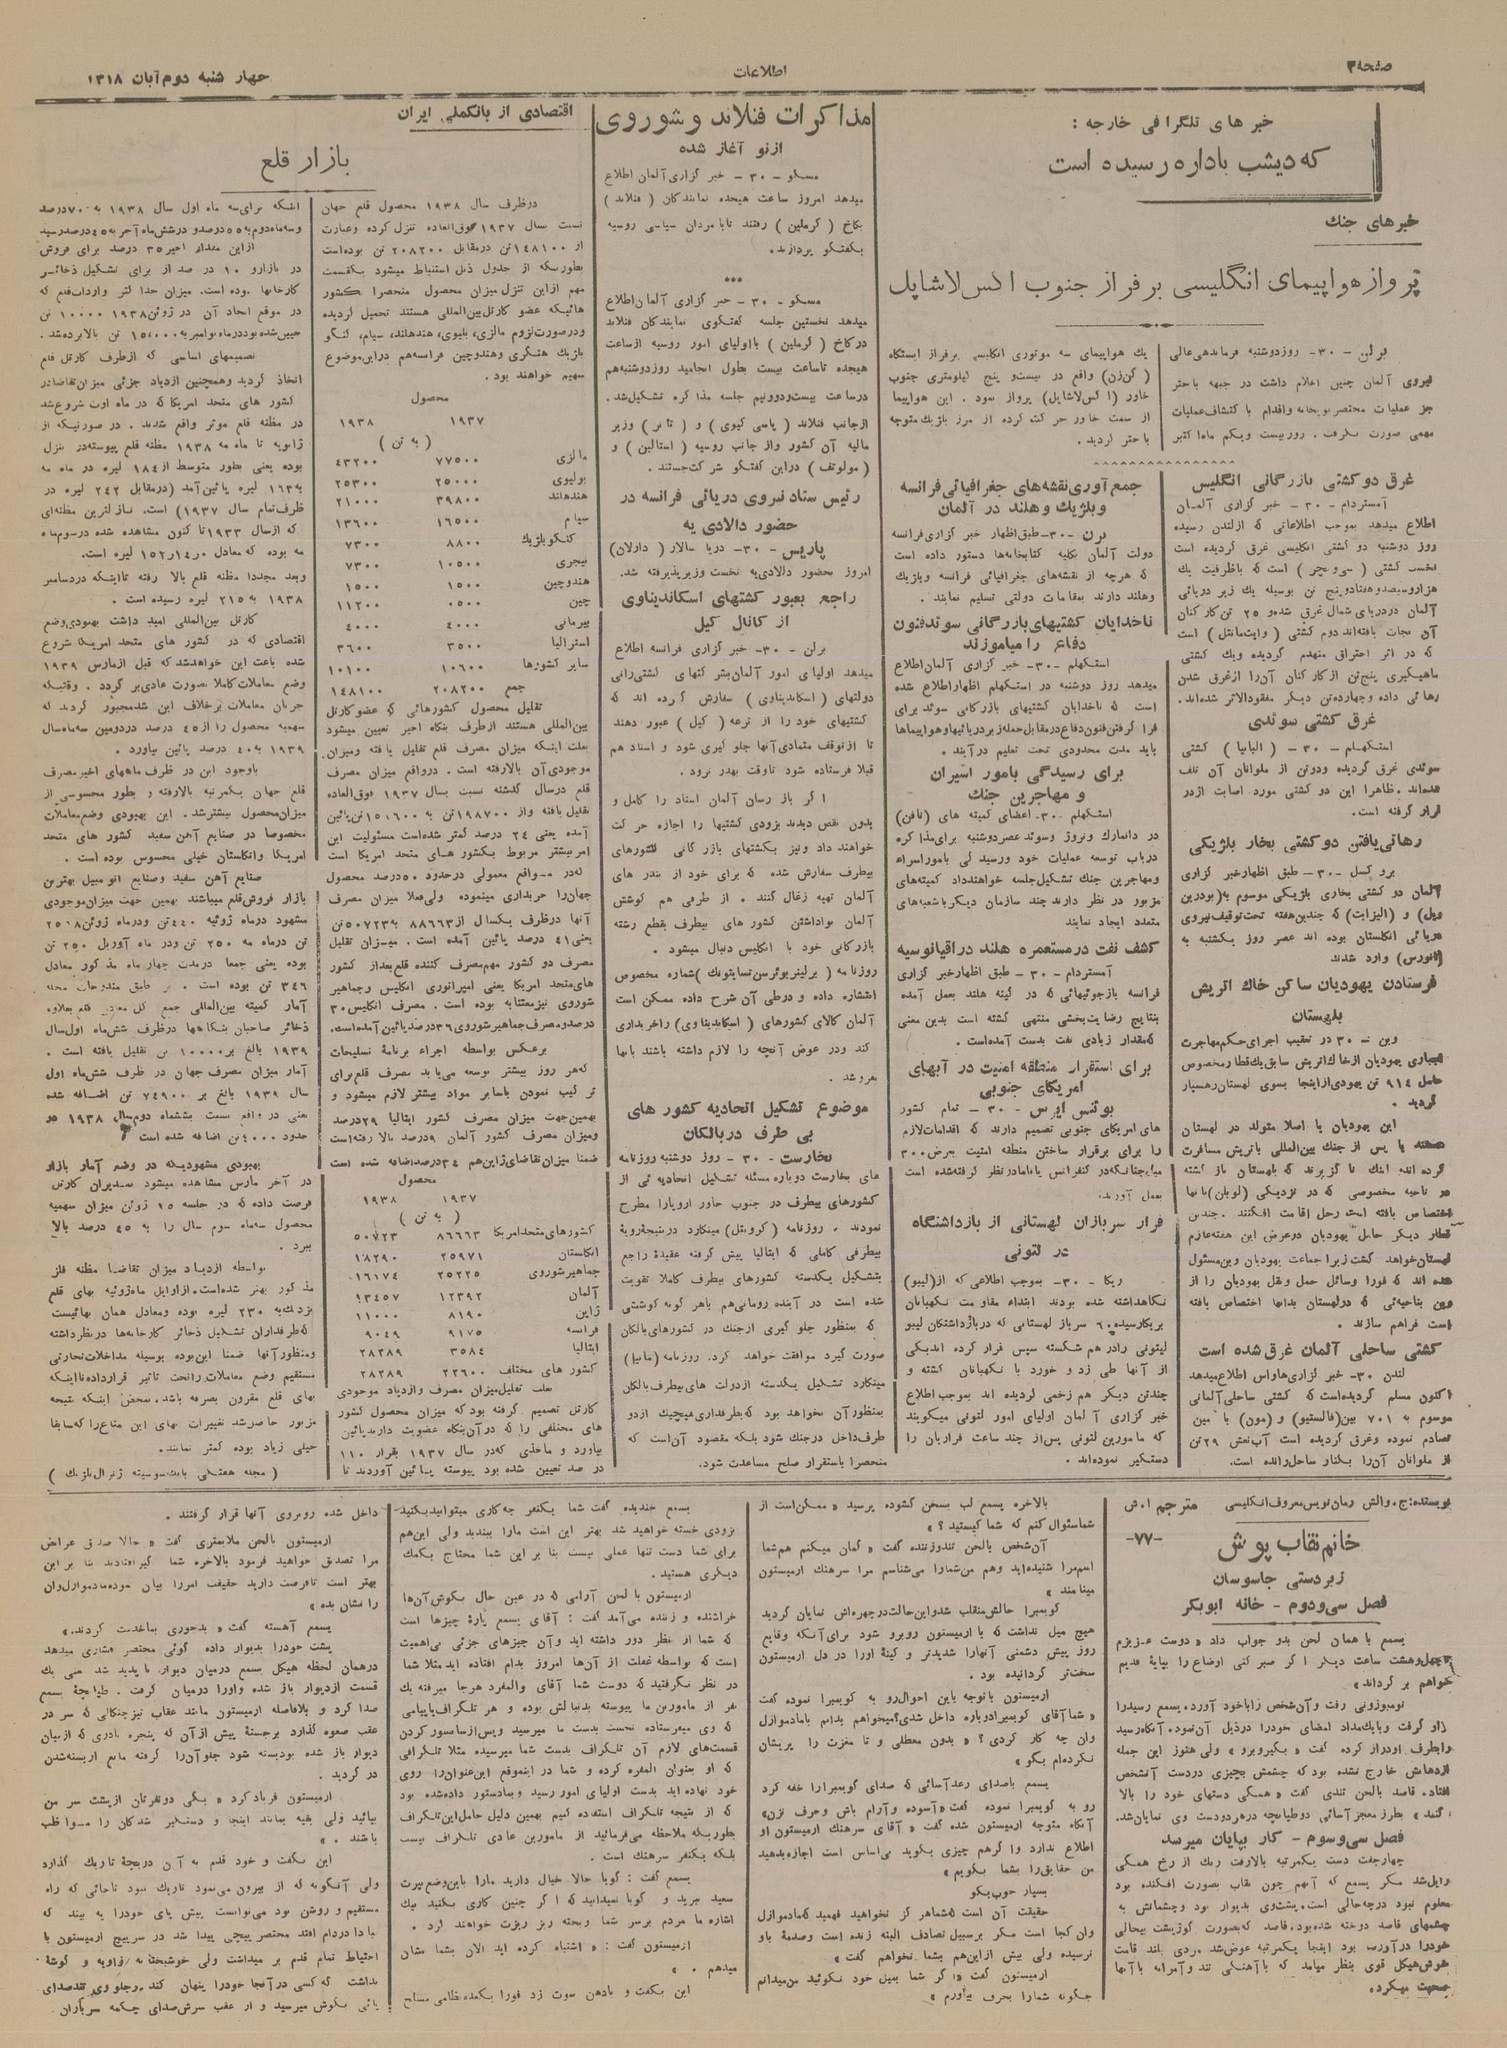 صفحه ۳
اطلاعات
چهار شنبه دوم آبان ۱۳۱۸
خبر های تلگرافی خارجه :
که دیشب باداره رسیده است
خبرهای جنك
پرواز هواپیمای انگلیسی بر فراز جنوب اکس لاشاپل
برلن - ۳۰- روز دوشنبه فرماندهی عالی
نیروی آلمان چنین اعلام داشت در جبهه باختر
جز عملیات مختصر توپخانه واقدام باکتشاف عملیات
مهمی صورت نگرفت . روز بیست ویکم ماه اکتبر
یك هواپیمای سه موتوری انگلیسی برفراز ایستگاه
واقع در بیست و پنج کیلومتری جنوب
خاور (اکس لاشاپل) پرواز نمود . این هواپیما
از سمت خاور حرکت کرده از مرز بلژیك متوجه
باختر گردید .
غرق دو کشتی بازرگانی انگلیس
آمستردام - ۳۰ - خبر گزاری آلمان
اطلاع میدهد بموجب اطلاعاتی که از لندن رسیده
روز دوشنبه دو کشتی انگلیسی غرق گردیده است
آلمان در دریای شمال غرق شده و ۲۵ تن کارکنان
آن نجات یافته‌اند دوم کشتی است
که در اثر احتراق منهدم گردیده ویك کشتی
ماهیگیری پنج تن از کارکنان آن را از غرق شدن
رهائی داده و چهارده تن دیگر مفقودالاثر شده‌اند.
غرق کشتی سوئدی
استکهلم - ۳۰ - کشتی
سوئدی غرق گردیده ودوتن از ملوانان آن تلف
شده‌اند. ظاهرا این دو کشتی مورد اصابت اژدر
قرار گرفته است.
رهائی یافتن دو کشتی بخار بلژیکی
برو کسل - ۳۰- طبق اظهار خبر گزاری
آلمان دو کشتی بخاری بلژیکی موسوم به
و (الیزابت) که چندین هفته تحت توقیف نیروی
دریائی انگلستان بوده اند عصر روز یکشنبه به
(انورس) وارد شدند
فرستادن یهودیان ساکن خاك اتریش
بلهستان
وین - ۳۰ در تعقیب اجرای حکم مهاجرت
اجباری یهودیان از خاك اتریش سابق یك قطار مخصوص
حامل ۹۱۴ تن یهودی از اینجا بسوی لهستان رهسپار
گردید .
این یهودیان یا اصلا متولد در لهستان
هستند یا پس از جنك بین‌المللی باتریش مسافرت
کرده اند اینك ناگزیرند که بلهستان باز گشته
در ناحیه مخصوصی که در نزدیکی (لوبلن) بانها
اختصاص یافته است رحل اقامت افکنند . چندین
قطار دیگر حامل یهودیان در عرض این هفته عازم
لهستان خواهد گشت زیرا جماعت یهودیان وین مسئول
شده اند که فورا وسائل حمل ونقل یهودیان را از
وین بناحیه‌ئی که در لهستان بدانها اختصاص یافته
است فراهم سازند .
کشتی ساحلی آلمان غرق شده است
لندن ۳۰- خبر گزاری هاواس اطلاع میدهد
اکنون مسلم گردیده است که کشتی ساحلی آلمانی
موسوم به ۷۰۱ بین (فالستبو) و (مون) با مین
تصادم نموده وغرق گردیده است آب نعش ۲۹ تن
از ملوانان آن را بکنار ساحل رانده است.
جمع آوری نقشه های جغرافیائی فرانسه
وبلژیك وهلند در آلمان
برن - ۳۰- طبق اظهار خبر گزاری فرانسه
دولت آلمان بکلیه کتابخانه‌ها دستور داده است
که هرچه از نقشه‌های جغرافیائی فرانسه وبلژیك
وهلند دارند بمقامات دولتی تسلیم نمایند .
ناخدایان کشتیهای بازرگانی سوئد فنون
دفاع را میاموزند
استکهلم - ۳۰- خبر گزاری آلمان اطلاع
میدهد روز دوشنبه در استکهلم اظهار اطلاع شده
است که ناخدایان کشتیهای بازرگانی سوئد برای
فرا گرفتن فنون دفاع در مقابل حمله زیر دریائیها و هواپیماها
باید مدت محدودی تحت تعلیم در آیند .
برای رسیدگی بامور اسیران
و مهاجرین جنك
استکهلم - ۳۰. اعضای کمیته های (نانزن)
در دانمارك ونروژ وسوئد عصر دوشنبه برای مذاکره
در باب توسعه عملیات خود ورسیدگی بامور اسراء
ومهاجرین جنك تشکیل جلسه خواهند داد کمیته‌های
مزبور در نظر دارند چند سازمان دیگر با شعبه‌های
متعدد ایجاد نمایند
کشف نفت در مستعمره هلند در اقیانوسیه
آمستردام - ۳۰ - طبق اظهار خبر گزاری
فرانسه بازجوئیهائی که در گینه هلند بعمل آمده
بنتایج رضایت‌بخشی منتهی گشته است بدین معنی
که مقدار زیادی نفت بدست آمده است.
برای استقرار منطقه امنیت در آبهای
امریکای جنوبی
بوئنس ایرس - ۳۰ - تمام کشور
های امریکای جنوبی تصمیم دارند که اقدامات لازم
را برای برقرار ساختن منطقه امنیت بعرض ۳۰۰
میل چنانکه در کنفرانس پاناما در نظر گرفته شده است
بعمل آورند.
فرار سربازان لهستانی از بازداشتگاه
در لتونی
ریگا - ۳۰- بموجب اطلاعی که از (لیبو)
نگاهداشته شده بودند ابتداء مقاومت نگهبانان
لیتونی را درهم شکسته سپس فرار کرده اند یکی
از آنها طی زد و خورد با نگهبانان کشته و
چندتن دیگر هم زخمی گردیده اند بموجب اطلاع
خبر گزاری آلمان اولیای امور لتونی میگویند
که مامورین لتونی پس از چند ساعت فراریان را
دستگیر نموده‌اند .
مذاکرات فنلاند و شوروی
از نو آغاز شده
مسکو - ۳۰ - خبر گزاری آلمان اطلاع
میدهد امروز ساعت هیجده نمایندگان (فنلاند)
بکاخ (کرملین) رفتند تا با مردان سیاسی روسیه
بگفتگو پردازند.
***
مسکو - ۳۰ - خبر گزاری آلمان اطلاع
میدهد نخستین جلسه گفتگوی نمایندگان فنلاند
در کاخ (کرملین) با اولیای امور روسیه از ساعت
هیجده تا ساعت بیست بطول انجامید روز دوشنبه هم
در ساعت بیست ودو نیم جلسه مذاکره تشکیل شد.
از جانب فنلاند (پاسی کیوی) و (تانر) وزیر
مالیه آن کشور واز جانب روسیه (استالین) و
(مولوتف) در این گفتگو شرکت جستند .
رئیس ستاد نیروی دریائی فرانسه در
حضور دالادی یه
پاریس - ۳۰- دریا سالار (دارلان)
امروز بحضور دالادی‌یه نخست وزیر پذیرفته شد.
راجع بعبور کشتیهای اسکاندیناوی
از کانال کیل
برلن - ۳۰- خبر گزاری فرانسه اطلاع
میدهد اولیای امور آلمان بشرکتهای کشتی رانی
دولتهای (اسکاندیناوی) سفارش کرده اند که
کشتیهای خود را از ترعه (کیل) عبور دهند
تا از توقف متمادی آنها جلو گیری شود و اسناد هم
قبلا فرستاده شود تا وقت بهدر نرود .
اگر باز رسان آلمان اسناد را کامل و
بدون نقص دیدند بزودی کشتیها را اجازه حرکت
خواهند داد ونیز بکشتیهای بازرگانی کشورهای
بیطرف سفارش شده که برای خود از بندر های
آلمان تهیه زغال کنند . از طرفی هم کوشش
آلمان بواداشتن کشور های بیطرف بقطع رشته
بازرگانی خود با انگلیس دنبال میشود .
روزنامه شماره مخصوص
انتشار داده و در طی آن شرح داده ممکن است
آلمان کالای کشورهای (اسکاندیناوی) را خریداری
کند و در عوض آنچه را لازم داشته باشند بانها
بفروشد .
موضوع تشکیل اتحادیه کشور های
بی طرف در بالکان
بخارست - ۳۰ - روز دوشنبه روزنامه
های بخارست دوباره مسئله تشکیل اتحادیه ئی از
کشورهای بیطرف در جنوب خاور اروپا را مطرح
نمودند . روزنامه (کرونتل) مینگارد در نتیجه رویه
بیطرفی کاملی که ایتالیا پیش گرفته عقیده راجع
بتشکیل یکدسته کشورهای بیطرف کاملا تقویت
شده است در آینده رومانی هم باهر گونه کوششی
که بمنظور جلو گیری از جنك در کشورهای بالکان
صورت گیرد موافقت خواهد کرد. روزنامه
مینگارد تشکیل یکدسته از دولت های بیطرف بالکان
بمنظور آن نخواهد بود که بطرفداری هیچیك از دو
طرف داخل در جنك شود بلکه مقصود آن است که
منحصرا باستقرار صلح مساعدت شود.
اقتصادی از بانك ملی ایران
بازار قلع
در ظرف سال ۱۹۳۸ محصول قلع جهان
نسبت بسال ۱۹۳۷ فوق العاده تنزل کرده وعبارت
از ۱۴۸۱۰۰ تن در مقابل ۲۰۸۲۰۰ تن بوده است
بطوریکه از جدول ذیل استنباط میشود یکقسمت
مهم از این تنزل میزان محصول منحصرا بکشور
هائیکه عضو کارتل بین‌المللی هستند تحمیل گردیده
ودر صورت لزوم مالزی، بلیوی، هند هلند، سیام، کنگو
بلژیك هنگری وهندوچین فرانسه هم در این موضوع
سهیم خواهند بود .
محصول
۱۹۳۷ ۱۹۳۸
( به تن )
مالزی ۷۷۵۰۰ ۴۳۲۰۰
بولیوی ۲۵۰۰۰ ۲۵۳۰۰
هند هلند ۳۹۸۰۰ ۲۱۰۰۰
سیام ۱۶۵۰۰ ۱۳۶۰۰
کنگو بلژیك ۸۸۰۰ ۷۳۰۰
نیجری ۱۰۵۰۰ ۷۳۰۰
هندوچین ۱۵۰۰ ۱۵۰۰
چین ۱۱۲۰۰
بیرمانی ۴۰۰۰ ۴۰۰۰
استرالیا ۳۵۰۰ ۳۶۰۰
سایر کشورها ۱۰۶۰۰ ۱۰۱۰۰
جمع ۲۰۸۲۰۰ ۱۴۸۱۰۰
تقلیل محصول کشورهائی که عضو کارتل
بین‌المللی هستند از طرف بنگاه اخیر تعیین میشود
بعلت اینکه میزان مصرف قلع تقلیل یافته ومیزان
موجودی آن بالا رفته است . در واقع میزان مصرف
قلع در سال گذشته نسبت بسال ۱۹۳۷ فوق العاده
تقلیل یافته و از ۱۹۸۷۰۰ تن به ۱۵۱۶۰۰ تن پائین
آمده یعنی ۲۴ درصد کمتر شده است مسئولیت این
امر بیشتر مربوط بکشور های متحد امریکا است
که در مواقع معمولی در حدود ۵۰ درصد محصول
جهان را خریداری مینموده ولی فعلا میزان مصرف
آنها در ظرف یکسال از ۸۶۶۶۳ به ۵۰۷۲۳ تن
یعنی ۴۱ درصد پائین آمده است . میزان تقلیل
مصرف دو کشور مهم مصرف کننده قلع بعد از کشور
های متحد امریکا یعنی امپراتوری انگلیس وجماهیر
شوروی نیز معتنابه بوده است . مصرف انگلیس ۳۰
درصد ومصرف جماهیر شوروی ۳۶ درصد پائین آمده است.
برعکس بواسطه اجراء برنامه تسلیحات
که هر روز بیشتر توسعه می‌یابد مصرف قلع برای
ترکیب نمودن با سایر مواد بیشتر لازم میشود و
بهمین جهت میزان مصرف کشور ایتالیا ۲۹ درصد
ومیزان مصرف کشور آلمان ۹ درصد بالا رفته است
ضمنا میزان تقاضای ژاپن هم ۳۴ درصد اضافه شده است
محصول
۱۹۳۷ ۱۹۳۸
( به تن )
کشورهای متحد امریکا ۸۶۶۶۳ ۵۰۷۲۳
انگلستان ۲۵۹۷۱ ۱۸۲۹۰
جماهیر شوروی ۲۵۲۲۵ ۱۶۱۷۴
آلمان ۱۲۳۹۲ ۱۳۴۵۷
ژاپن ۸۱۹۰ ۱۱۰۰۰
فرانسه ۹۱۷۵ ۹۰۴۹
ایتالیا ۳۵۸۴
کشور های مختلف ۲۸۲۸۹
بعلت تقلیل میزان مصرف وازدیاد موجودی
کارتل تصمیم گرفته بود که میزان محصول کشور
های مختلفی را که در آن بنگاه عضویت دارند پائین
بیاورد و ماخذی که در سال ۱۹۳۷ بقرار ۱۱۰
در صد تعیین شده بود پیوسته پائین آوردند تا
اینکه برای سه ماه اول سال ۱۹۳۸ به ۷۰ درصد
وسه ماه دوم به ۵۵ درصد ودر شش ماه آخر به ۴۵ درصد رسید
از این مقدار اخیر ۳۵ درصد برای فروش
در بازار و ۱۰ در صد از برای تشکیل ذخائر
کارخانها بوده است. میزان حداکثر واردات قلع که
در موقع ایجاد آن در ژوئن ۱۹۳۸ ۱۰۰۰۰ تن
تعیین شده بود در ماه نوامبر به ۱۵۰۰۰ تن بالا برده شد .
تصمیمهای اساسی که از طرف کارتل قلع
اتخاذ گردید وهمچنین ازدیاد جزئی میزان تقاضا در
کشور های متحد امریکا که در ماه اوت شروع شد
در مظنه قلع موثر واقع شدند . در صورتیکه از
ژانویه تا ماه مه ۱۹۳۸ مظنه قلع پیوسته در تنزل
بوده یعنی بطور متوسط از ۱۸۴ لیره در ماه مه
به ۱۶۳ لیره پائین آمد (در مقابل ۲۴۲ لیره در
ظرف تمام سال ۱۹۳۷) است. نازلترین مظنه‌ای
که از سال ۱۹۳۳ تا کنون مشاهده شده در سوم ماه
وبعد مجددا مظنه قلع بالا رفته تا اینکه در دسامبر
۱۹۳۸ به ۲۱۵ لیره رسیده است .
کارتل بین‌المللی امید داشت بهبودی وضع
اقتصادی که در کشور های متحد امریکا شروع
شده باعث این خواهد شد که قبل از مارس ۱۹۳۹
وضع معاملات کاملا بصورت عادی بر گردد . وقتیکه
جریان معاملات برخلاف این شد مجبور گردید که
سهمیه محصول را از ۴۵ درصد در دومین سه ماه سال
۱۹۳۹ به ۴۰ درصد پائین بیاورد .
باوجود این در ظرف ماههای اخیر مصرف
قلع جهان یکمرتبه بالا رفته و بطور محسوسی از
میزان محصول بیشتر شد . این بهبودی وضع معاملات
مخصوصا در صنایع آهن سفید کشور های متحد
امریکا وانگلستان خیلی محسوس بوده است .
صنایع آهن سفید وصنایع اتومبیل بهترین
بازار فروش قلع میباشند بهمین جهت میزان موجودی
بوده یعنی جمعا در مدت چهار ماه مذکور معادل
۳۴۶ تن بوده است .
ذخائر صاحبان بنگاهها در ظرف شش ماه اول سال
۱۹۳۹ بالغ بر ۱۰۰۰۰ تن تقلیل یافته است .
آمار میزان مصرف جهان در ظرف شش ماه اول
سال ۱۹۳۹ بالغ بر ۷۴۹۰۰ تن اضافه شده
یعنی در واقع نسبت بششماه دوم سال ۱۹۳۸ در
حدود ۴۰۰۰ تن اضافه شده است
بهبودی مشهودیکه در وضع آمار بازار
در آخر مارس مشاهده میشود بمدیران کارتل
فرصت داده که در جلسه ۱۵ ژوئن میزان سهمیه
محصول سه ماه سوم سال را به ۴۵ درصد بالا
ببرد .
بواسطه ازدیاد میزان تقاضا مظنه فلز
مذکور بهتر شده است. از اوایل ماه ژوئیه بهای قلع
نزدیك به ۲۳۰ لیره بوده ومعادل همان بهائیست
که طرفداران تشکیل ذخائر کارخانه‌ها در نظر داشته
ومنظور آنها ضمنا این بوده بوسیله مداخلات تجارتی
مستقیم وضع معاملات را تحت تاثیر قرار داده تا اینکه
بهای قلع مقرون بصرفه باشد.
مزبور حاصر شد تغییرات بهای این متاع را که سابقا
خیلی زیاد بوده کمتر نمایند.
( مجله هفتگی بانك سوسیته ژنرال بلژیك )
نویسنده: ج. والش رمان نویس معروف انگلیسی مترجم ا.ش
خانم نقاب پوش
-۷۷-
زبردستی جاسوسان
فصل سی ودوم - خانه ابوبکر
یسمع با همان لحن بدو جواب داد « دوست عزیزم
چهل وهشت ساعت دیگر اگر صبر کنی اوضاع را بپایه قدیم
خواهم بر گرداند »
آنگاه رسید
رابطرف او دراز کرده گفت « بگیر و برو » ولی هنوز این جمله
از دهانش خارج نشده بود که چشمش بچیزی در دست آنشخص
افتاد. قاصد بالحن تندی گفت « همگی دستهای خود را بالا
کنند » بطرز معجز آسائی دو طپانچه در هر دو دست وی نمایان شد.
فصل سی وسوم - کار بپایان میرسد
چهار جفت دست یکمرتبه بالا رفت رنك از رخ همگی
زایل شد مگر یسمع که آنهم چون نقاب بصورت افکنده بود
معلوم نبود در چه حالی است. پشت وی بدیوار بود وچشمانش به
چشمهای قاصد دوخته شده بود. قاصد که بصورت گوژپشت بیحالی
خودرا در آورده بود اینجا یکمرتبه عوض شد. مردی بلند قامت
خوش هیکل قوی بنظر میامد که با آهنگی تند و آمرانه با آنها
صحبت میکرد.
بالاخره یسمع لب بسخن گشوده پرسید « ممکن است از
شما سئوال کنم که شما کیستید ؟ »
آن شخص بالحن تند وزننده گفت « گمان میکنم هم شما
اسم مرا شنیده‌اید وهم من شما را می‌شناسم مرا سرهنك ارمیستون
مینامند »
کویمبرا حالش منقلب شد واین حالت در چهره‌اش نمایان گردید
هیچ میل نداشت که با ارمیستون روبرو شود برای آنکه وقایع
روز پیش دشمنی آنها را شدیدتر و کینه اورا در دل ارمیستون
سخت تر گردانیده بود .
ارمیستون باتوجه باین احوال رو به کویمبرا نموده گفت
« شما آقای کویمبرا درباره داخل شدی؟ میخواهم بدانم بامادموازل
وان چه کار کردی ؟ » بدون معطلی و تا مغزت را پریشان
نکرده‌ام بگو »
یسمع باصدای رعد آسائی که صدای کویمبرا را خفه کرد
رو به کویمبرا نموده گفت « آسوده وآرام باش وحرف نزن »
آنگاه متوجه ارمیستون شده گفت « آقای سرهنك ارمیستون او
اطلاع ندارد واگر هم چیزی بگوید بی‌اساس است اجازه بدهید
من حقایق را بشما بگویم »
بسیار خوب بگو
حقیقت آن است که شما هرگز نخواهید فهمید که مادموازل
وان کجا است مگر برسبیل تصادف البته زنده است وصدمه باو
نرسیده ولی بیش از این هم بشما نخواهم گفت »
ارمیستون گفت « اگر شما بمیل خود نگوئید من میدانم
چگونه شمارا بحرف بیاورم »
یسمع خندیده گفت شما یکنفر چه کاری میتوانید بکنید
بزودی خسته خواهید شد بهتر این است مارا ببندید ولی این هم
برای شما دست تنها عملی نیست بنا بر این شما محتاج بکمك
دیگری هستید.
ارمیستون با لحن آرامی که در عین حال بگوش آن‌ها
خراشنده و زننده می‌آمد گفت : آقای یسمع پاره چیزها است
که شما از نظر دور داشته اید وآن چیزهای جزئی بی‌اهمیت
است که بواسطه غفلت از آن‌ها امروز بدام افتاده اید مثلا شما
در نظر نگرفتید که دوست شما آقای والمفرد هرجا میرفته یك
نفر از مامورین ما پیوسته بدنبالش بوده و هر تلگراف یا پیامی
که وی میفرستاده نخست بدست ما میرسید وپس از سانسور کردن
قسمت‌های لازم آن تلگراف بدست شما میرسیده مثلا تلگرافی
که او بعنوان المفره کرده و شما در اینموقع این عنوان را روی
خود نهاده اید بدست اولیای امور رسید وبما دستور داده شده بود
که از نتیجه تلگراف استفاده کنیم بهمین دلیل حامل این تلگراف
بطوریکه ملاحظه می‌فرمائید از مامورین عادی تلگراف نیست
بلکه یکنفر سرهنك است .
سعید ببرید و گویا نمیدانید که اگر چنین کاری بکنید بیك
اشاره ما مردم برسر شما ریخته ریز ریزت خواهند کرد .
ارمیستون گفت : « اشتباه کرده اید الان بشما نشان
میدهم . »
این بگفت و بادهن سوت زد فورا یکعده نظامی مسلح
داخل شده روبروی آنها قرار گرفتند .
ارمیستون بالحن ملامتگری گفت « حالا صدق عرایض
مرا تصدیق خواهید فرمود بالاخره شما گیر افتادید بنا بر این
بهتر است تا فرصت دارید حقیقت امر را بیان نموده مادموازل وان
را نشان بده »
پشت خودرا بدیوار داده گوئی مختصر فشاری میدهد
درهمان لحظه هیکل یسمع درمیان دیوار ناپدید شد یعنی یك
قسمت از دیوار باز شده واورا درمیان گرفت . طپانچه یسمع
صدا کرد و بلافاصله ارمیستون مانند عقاب تیز چنگالی که سر در
عقب صعوه گذارد برجسته پیش از آن که پنجره نادری که از میان
دیوار باز شده بودبسته شود جلو آن را گرفته مانع از بسته شدن
در گردید .
ارمیستون فریاد کرد « یکی دو نفرتان از پشت سر من
بیائید ولی بقیه بمانند اینجا و دستگیر شدگان را مواظب
باشند . »
این بگفت و خود قدم به آن دریچه تاریك گذارد
ولی آنگونه که از بیرون می‌نمود تاریك نبود تا جائی که راه
مستقیم و روشن بود می‌توانست پیش پای خودرا به بیند که
مبادا در دام افتد مختصر پیچی پیدا شد در سرپیچ ارمیستون با
احتیاط تمام قدم بر میداشت ولی خوشبختانه زاویه و گوشه
نداشت که کسی در آنجا خودرا پنهان کند. در جلو وی تند صدای
پائی بگوش میرسید و از عقب سرش صدای چکمه سربازان